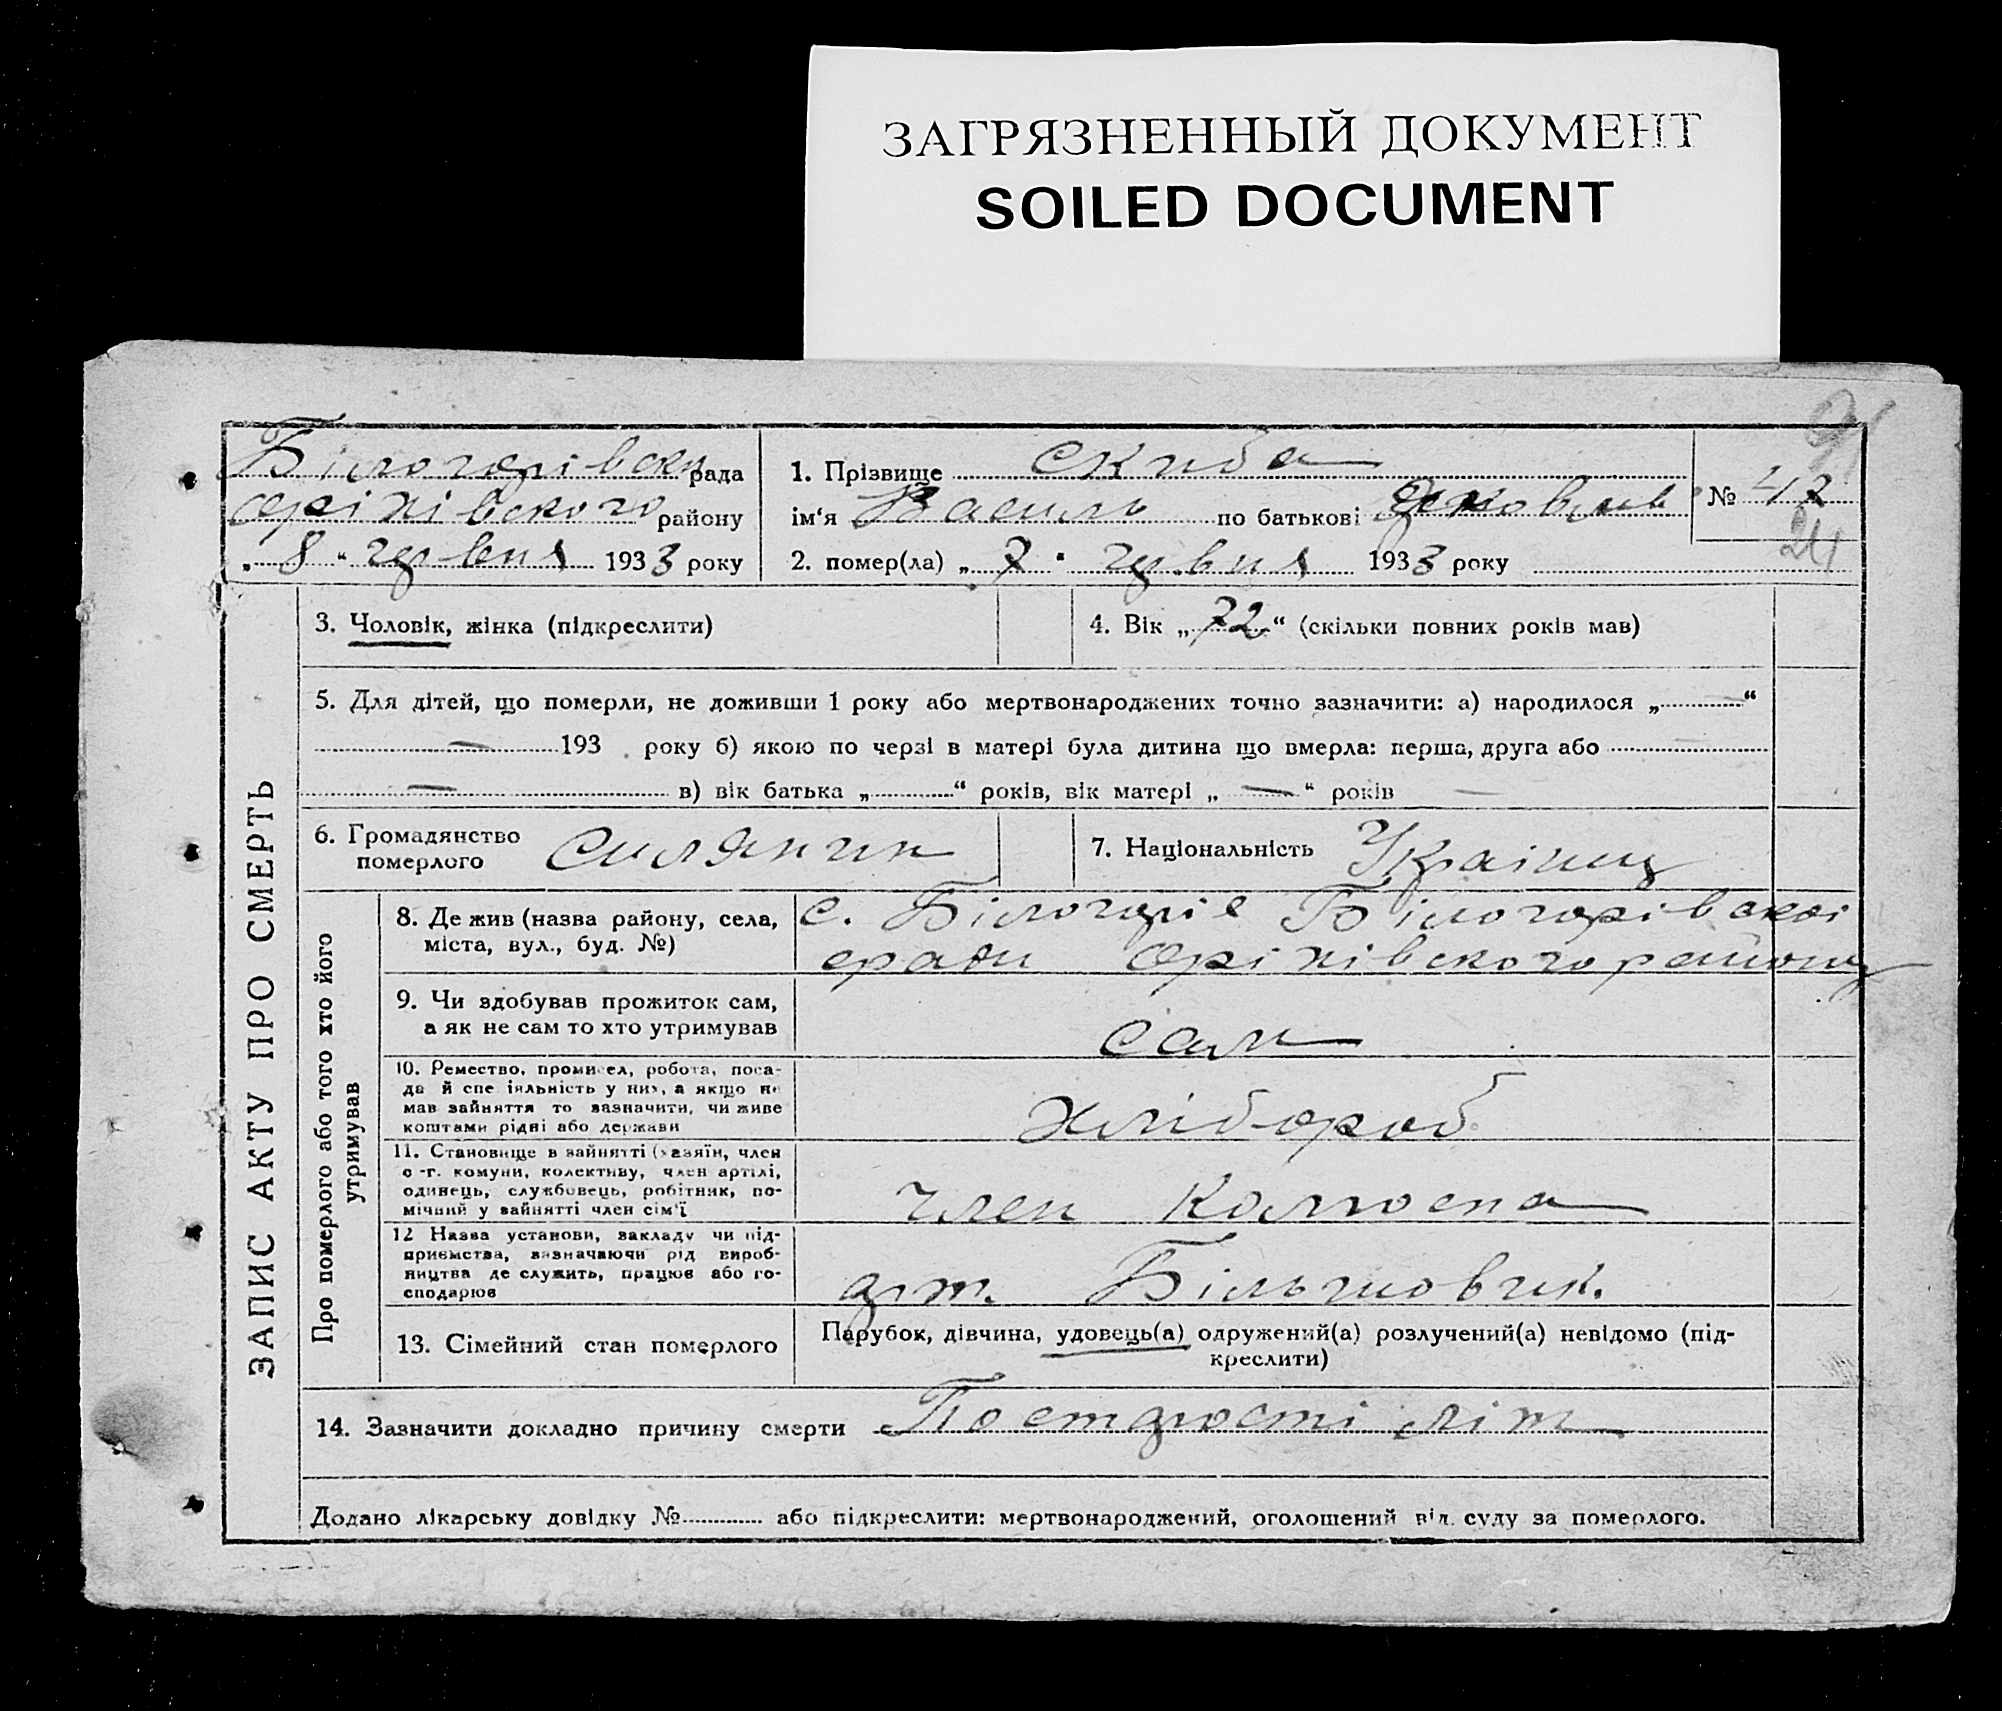 ЗАГРЯЗНЕННЫЙ ДОКУМЕНТ
SOILED DOCUMENT
Білогорівська рада
Оріхівського району
„ 8 “ червня 1933 року
1. Прізвище Скиба
ім‘я Василь по батькові Яковлев
2. помер(ла) „ 7 “ червня 1933 року
№ 47
91
24
ЗАПИС АКТУ ПРО СМЕРТЬ
3. Чоловік, жінка (підкреслити)
4. Вік „ 72 “ (скільки повних років мав)
5. Для дітей, що померли, не доживши 1 року або мертвонароджених точно зазначити: а) народилося „ — “
— 193 . року б) якою по черзі в матері була дитина що вмерла: перша, друга або —
— в) вік батька „ “ років, вік матері „ — “ років —
6. Громадянство
померлого Силяник
7. Національність Украінец
Про померлого або того хто його
утримував
8. Де жив (назва району, села,
міста, вул., буд. №)
с. Білогоріє Білогорівскоі
сради Оріхівского району
9. Чи здобував прожиток сам,
а як не сам то хто утримував
сам
10. Ремество, промисел, робота, поса-
да й спеціяльність у них, а якщо не
мав зайняття то зазначити, чи живе
коштами рідні або держави
Хлібороб
11. Становище в зайнятті (хазяїн, член
с.-г. комуни, колективу, член артілі,
одинець, службовець, робітник, по-
мічний у зайнятті член сім'ї
член колгоспа
12 Назва установи, закладу чи під-
приємства, зазначаючи рід вироб-
ництва де служить, працює або го-
сподарює
Більшовик.
13. Сімейний стан померлого
Парубок, дівчина, удовець(а) одружений(а) розлучений(а) невідомо (під-
креслити)
14. Зазначити докладно причину смерти По старости літ
Додано лікарську довідку № або підкреслити: мертвонароджений, оголошений від суду за померлого.